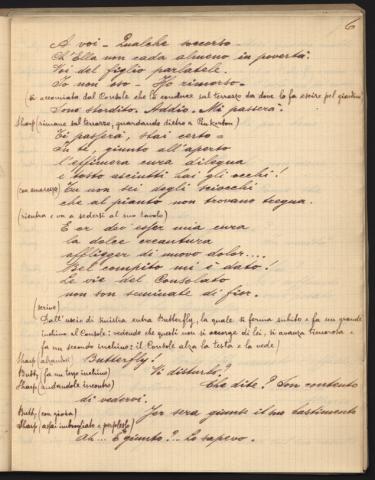 6
A voi - Qualche soccorso -
Ch'Ella non cada almeno in povertà.
Voi del figlio parlateli.
Io non oso - Ho rimorso -
(si accomiata dal Console che lo conduce sul terrazzo da dove lo fa escire pel giardino)
Sono stordito. Addio - Mi passerà.
Sharp (rimane sul terrazzo, guardando dietro a Pinkerton)
Ti passerà, stai certo -
In te, giunto all'aperto
l'effimera cura dilegua
e tosto asciutti hai gli occhi!
(con amarezza) Tu non sei degli sciocchi
che al pianto non trovano tregua.
(rientra e va a sedersi al suo tavolo)
E or dev'esser mia cura
la dolce creatura
affligger di nuovo dolor....
Bel compito mi è dato!
Le vie del Consolato
non son seminate di fior.
(scrive)
Dall'uscio di sinistra entra Butterfly, la quale si ferma subito e fa un grande
inchino al Console: vedendo che questi non si accorge di lei, si avanza timorosa e
fa un secondo inchino; il Console alza la testa e la vede)
Sharp (alzandosi) Butterfly!
Butty (fa un terzo inchino) Vi disturbo?
Sharp (andandole incontro) Che dite? Son contento
di vedervi.
Butty (con gioia) Jer sera giunse il suo bastimento
Sharp (assai imbrogliato e perplesso)
Ah... È giunto?.. Lo sapevo.